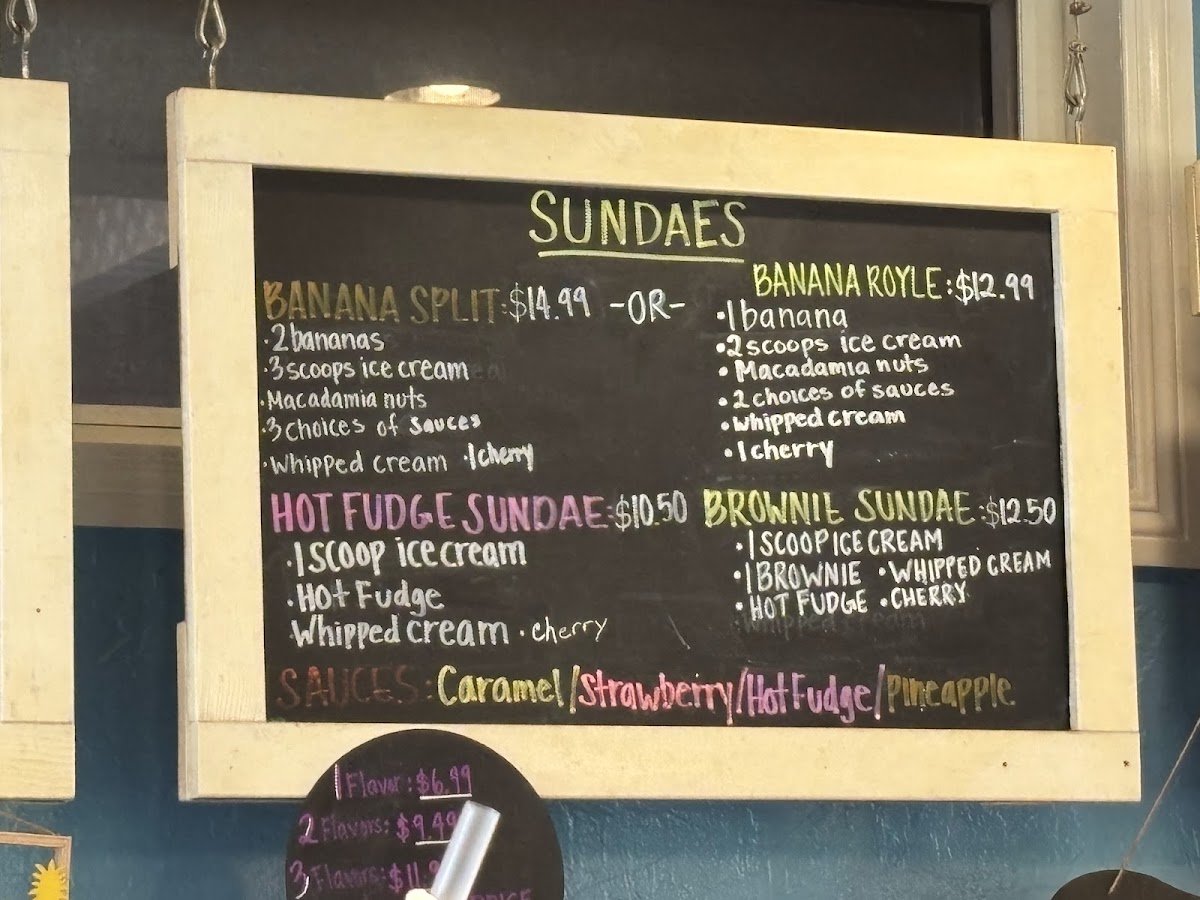 SUNDAES
BANANA SPLIT: $14.99 -OR-
·2 bananas
·3 scoops ice cream
·Macadamia nuts
·3 choices of sauces
·Whipped cream ·1 cherry
BANANA ROYLE: $12.99
•1 banana
•2 scoops ice cream
• Macadamia nuts
• 2 choices of sauces
•whipped cream
•1 cherry
HOT FUDGE SUNDAE: $10.50
·1 Scoop ice cream
·Hot Fudge
·Whipped cream · cherry
BROWNIE SUNDAE: $12.50
•1 SCOOP ICE CREAM
•1 BROWNIE •WHIPPED CREAM
• HOT FUDGE •CHERRY
SAUCES: Caramel/Strawberry/Hot Fudge/Pineapple
1 Flavor: $6.99
2 Flavors: $9.49
3 Flavors: $11.